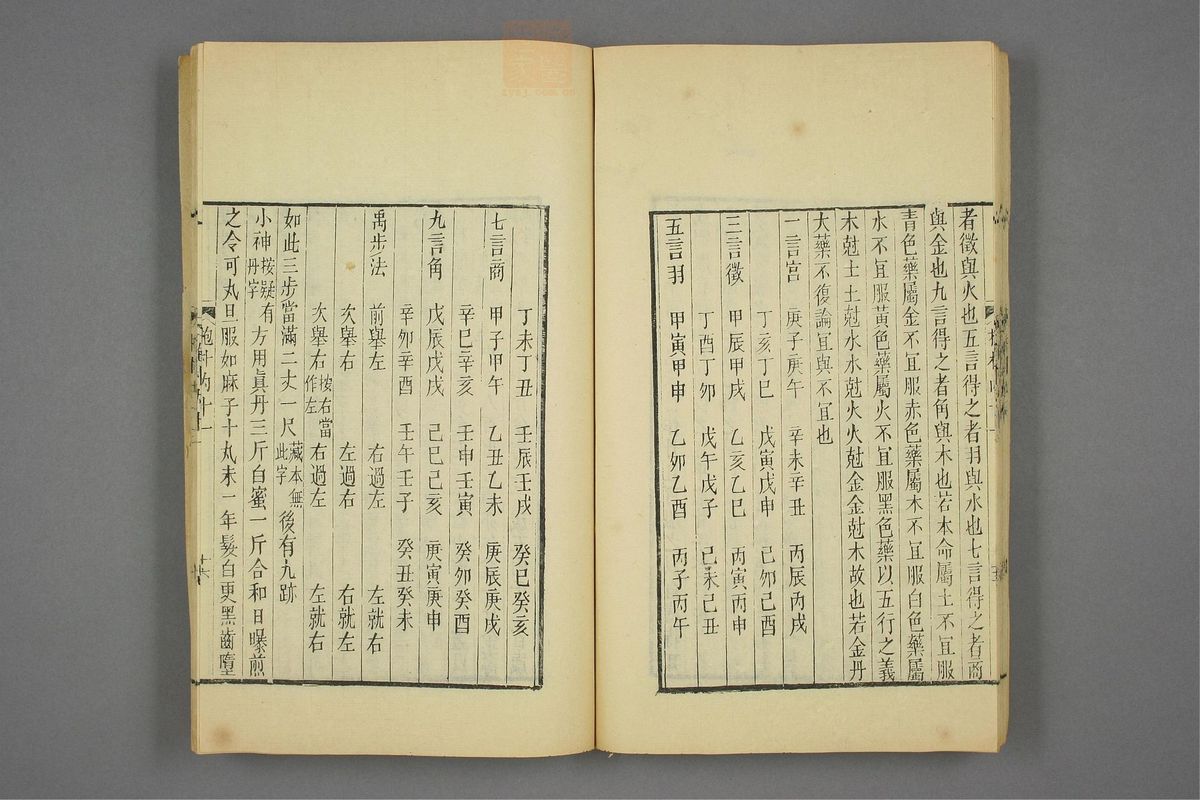 者徵與火也五言得之者羽與水也七言得之者商
與金也九言得之者角與木也若本命屬土不宜服
青色藥屬金不宜服赤色藥屬木不宜服白色藥屬
水不宜服黃色藥屬火不宜服黑色藥以五行之義
木尅土土尅水水尅火火尅金金尅木故也若金丹
大藥不復論宜與不宜也
一言宮 庚子庚午 辛未辛丑 丙辰丙戌
丁亥丁巳 戊寅戊申 己卯己酉
三言徵 甲辰甲戌 乙亥乙巳 丙寅丙申
丁酉丁卯 戊午戊子 己未己丑
五言羽 甲寅甲申 乙卯乙酉 丙子丙午
丁未丁丑 壬辰壬戌 癸巳癸亥
七言商 甲子甲午 乙丑乙未 庚辰庚戌
辛巳辛亥 壬申壬寅 癸卯癸酉
九言角 戊辰戊戌 己巳己亥 庚寅庚申
辛卯辛酉 壬午壬子 癸丑癸未
禹步法 前舉左 右過左 左就右
次舉右 左過右 右就左
次舉右按右當作左 右過左 左就右
如此三步當滿二丈一尺藏本無此字後有九跡
小神按疑有丹字方用眞丹三斤白蜜一斤合和日曝煎
之令可丸旦服如麻子十丸未一年髮白更黑齒墮